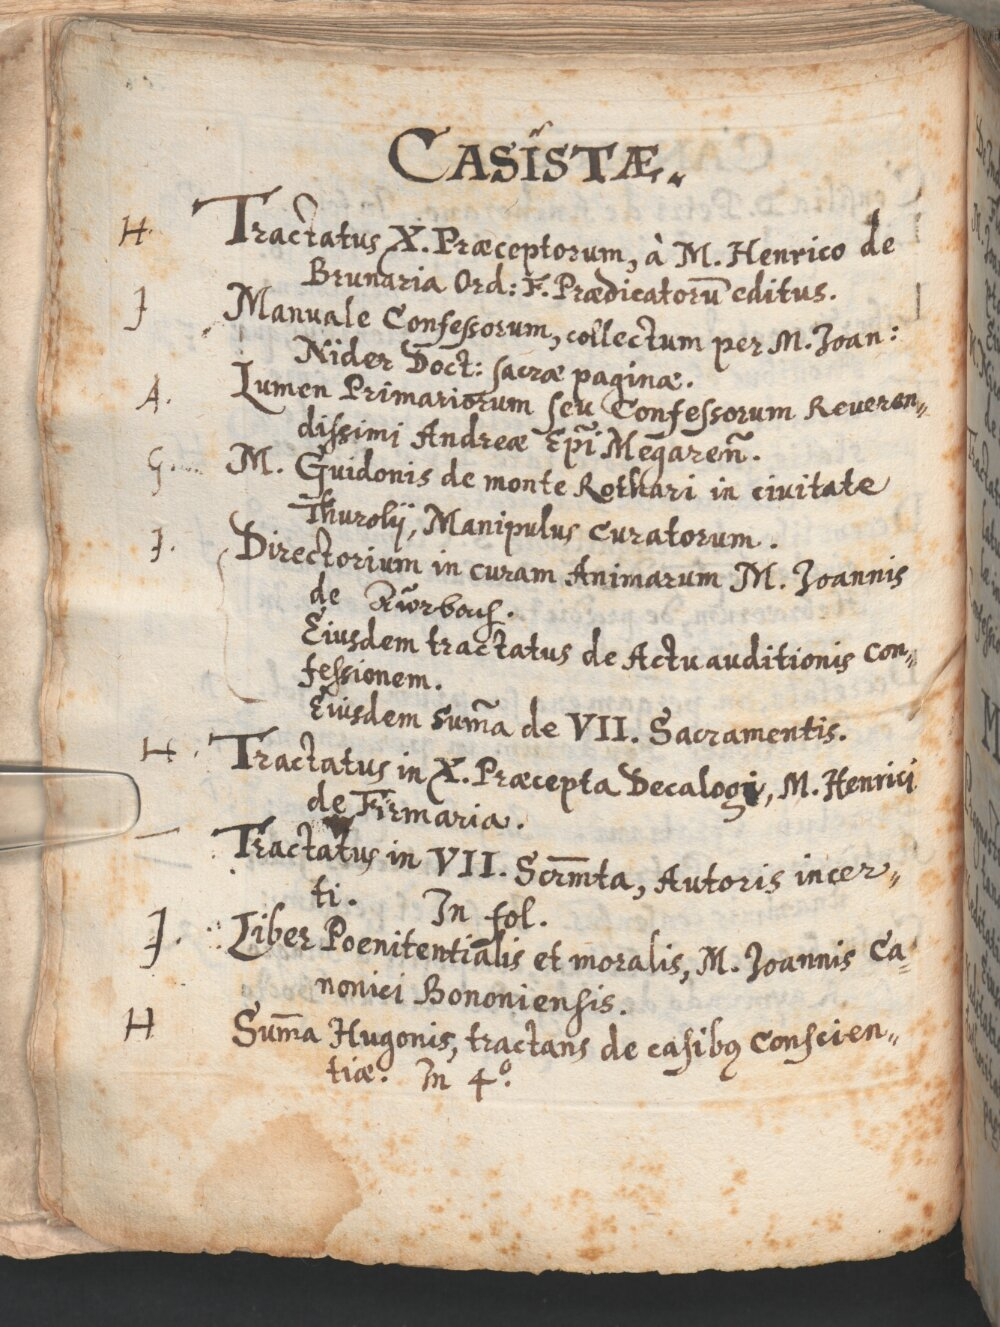 CASISTÆ.
H. Tractatus X. Præceptorum, à M. Henrico de
Brunaria Ord: F. Prædicatorū editus.
J Manuale Confessorum, collectum per M. Joan:
Nider Doct: sacræ paginæ.
A. Lumen Primariorum seu Confessorum Reveren„
dissimi Andreæ Epĩ Megareñ.
G M. Guidonis de monte Rothari in civitate
Thurolij, Manipulus Curatorum.
J. Directorium in curam Animarum M. Joannis
de
Eiusdem tractatus de Actu auditionis con„
fessionem.
Eiusdem Sum̃a de VII. Sacramentis.
H. Tractatus in X. Præcepta Decalogi, M. Henrici
de Firmaria.
— Tractatus in VII. Scrm̃ta, Autoris incer„
ti. In fol.
J. Liber Poenitentialis et moralis, M. Joannis Ca„
nonici Bononiensis.
H Sum̃a Hugonis, tractans de casibꝫ Conscien„
tiæ. In 4º.